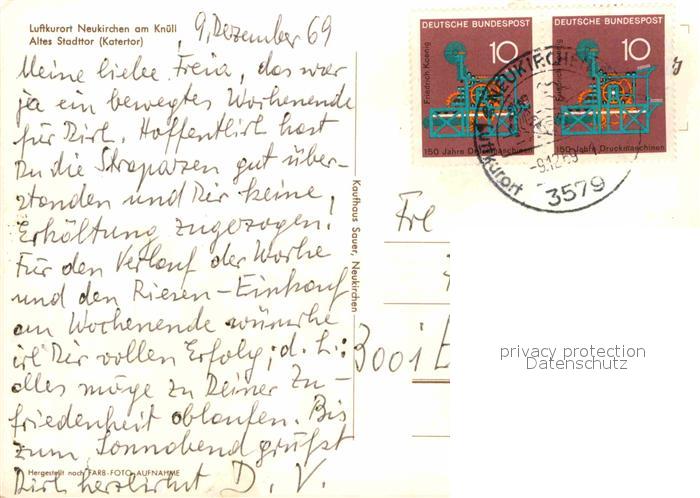 Luftkurort Neukirchen am Knüll
Altes Stadttor (Katertor)
9. Dezember 69
Meine liebe Freia, das war
ja ein bewegtes Wochenende
für Dich. Hoffentlich hast
Du die Strapazen gut über-
standen und Dir keine
Erkältung zugezogen!
Für den Verlauf der Woche
und den Riesen-Einkauf
am Wochenende wünsche
ich Dir vollen Erfolg; d.h.:
alles möge zu Deiner Zu-
friedenheit ablaufen. Bis
zum Sonnabend grüßt
Dich herzlichst D. V.
Hergestellt nach FARB-FOTO-AUFNAHME
Kaufhaus Sauer, Neukirchen
DEUTSCHE BUNDESPOST
10
Friedrich Koenig
150 Jahre Druckmaschinen
DEUTSCHE BUNDESPOST
10
150 Jahre Druckmaschinen
NEUKIRCHEN
-9.12.69
Luftkurort
3579
Fre
3001
privacy protection
Datenschutz